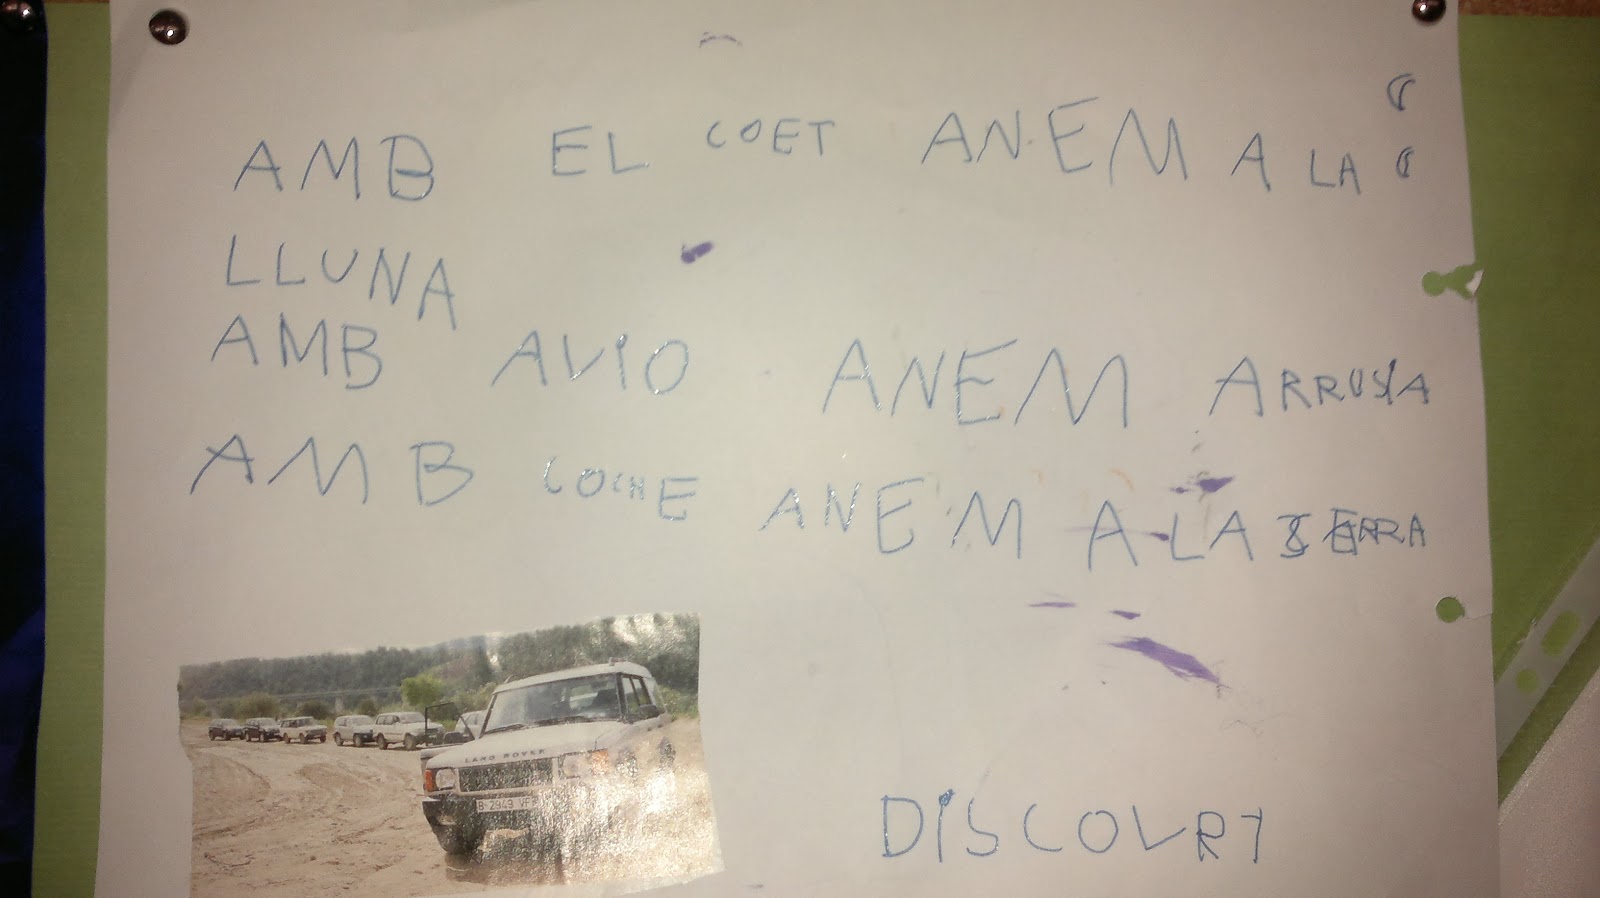 AMB EL COET ANEM A LA
LLUNA
AMB AVIO ANEM ARRUSIA
AMB COCHE ANEM A LA SERRA
LAND ROVER
B-2949 VF
DISCOVRY